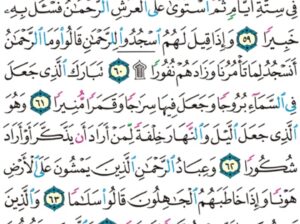 فِى سِتَّةِ أَيَّامٍ ثُمَّ ٱسْتَوَىٰ عَلَى ٱلْعَرْشِ ٱلرَّحْمَٰنُ فَسْـَٔلْ بِهِۦ
خَبِيرًا ٥٩ وَإِذَا قِيلَ لَهُمُ ٱسْجُدُوا۟ لِلرَّحْمَٰنِ قَالُوا۟ وَمَا ٱلرَّحْمَٰنُ
أَنَسْجُدُ لِمَا تَأْمُرُنَا وَزَادَهُمْ نُفُورًا ۩ ٦٠ تَبَارَكَ ٱلَّذِى جَعَلَ
فِى ٱلسَّمَآءِ بُرُوجًا وَجَعَلَ فِيهَا سِرَٰجًا وَقَمَرًا مُّنِيرًا ٦١ وَهُوَ
ٱلَّذِى جَعَلَ ٱلَّيْلَ وَٱلنَّهَارَ خِلْفَةً لِّمَنْ أَرَادَ أَن يَذَّكَّرَ أَوْ أَرَادَ
شُكُورًا ٦٢ وَعِبَادُ ٱلرَّحْمَٰنِ ٱلَّذِينَ يَمْشُونَ عَلَى ٱلْأَرْضِ
هَوْنًا وَإِذَا خَاطَبَهُمُ ٱلْجَٰهِلُونَ قَالُوا۟ سَلَٰمًا ٦٣ وَٱلَّذِينَ